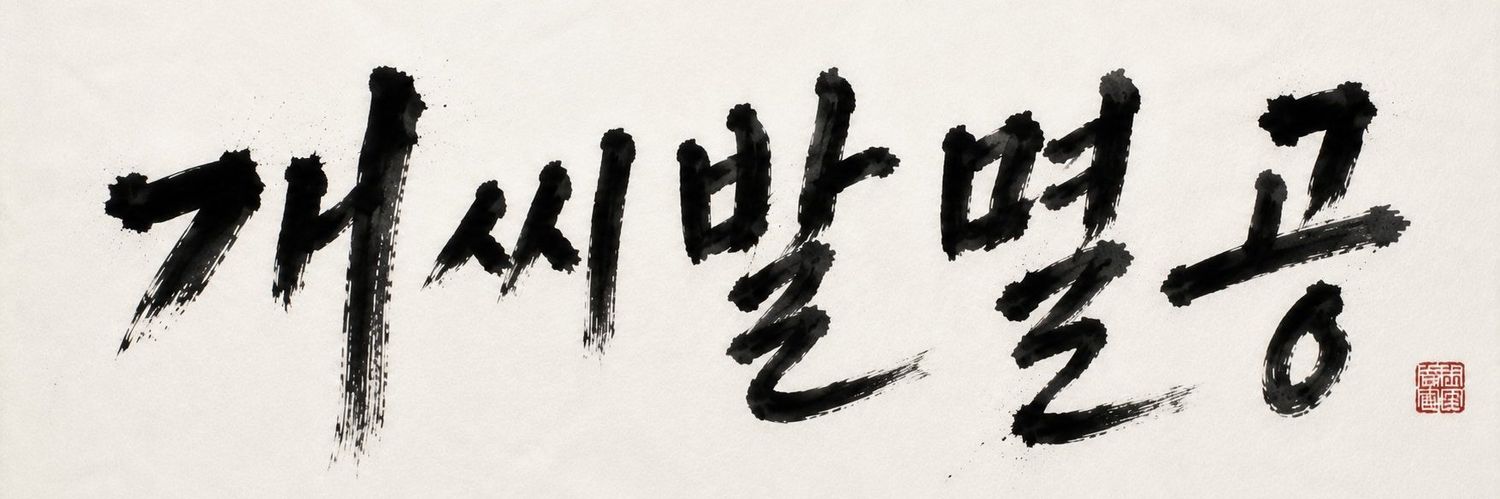 개씨발멸공